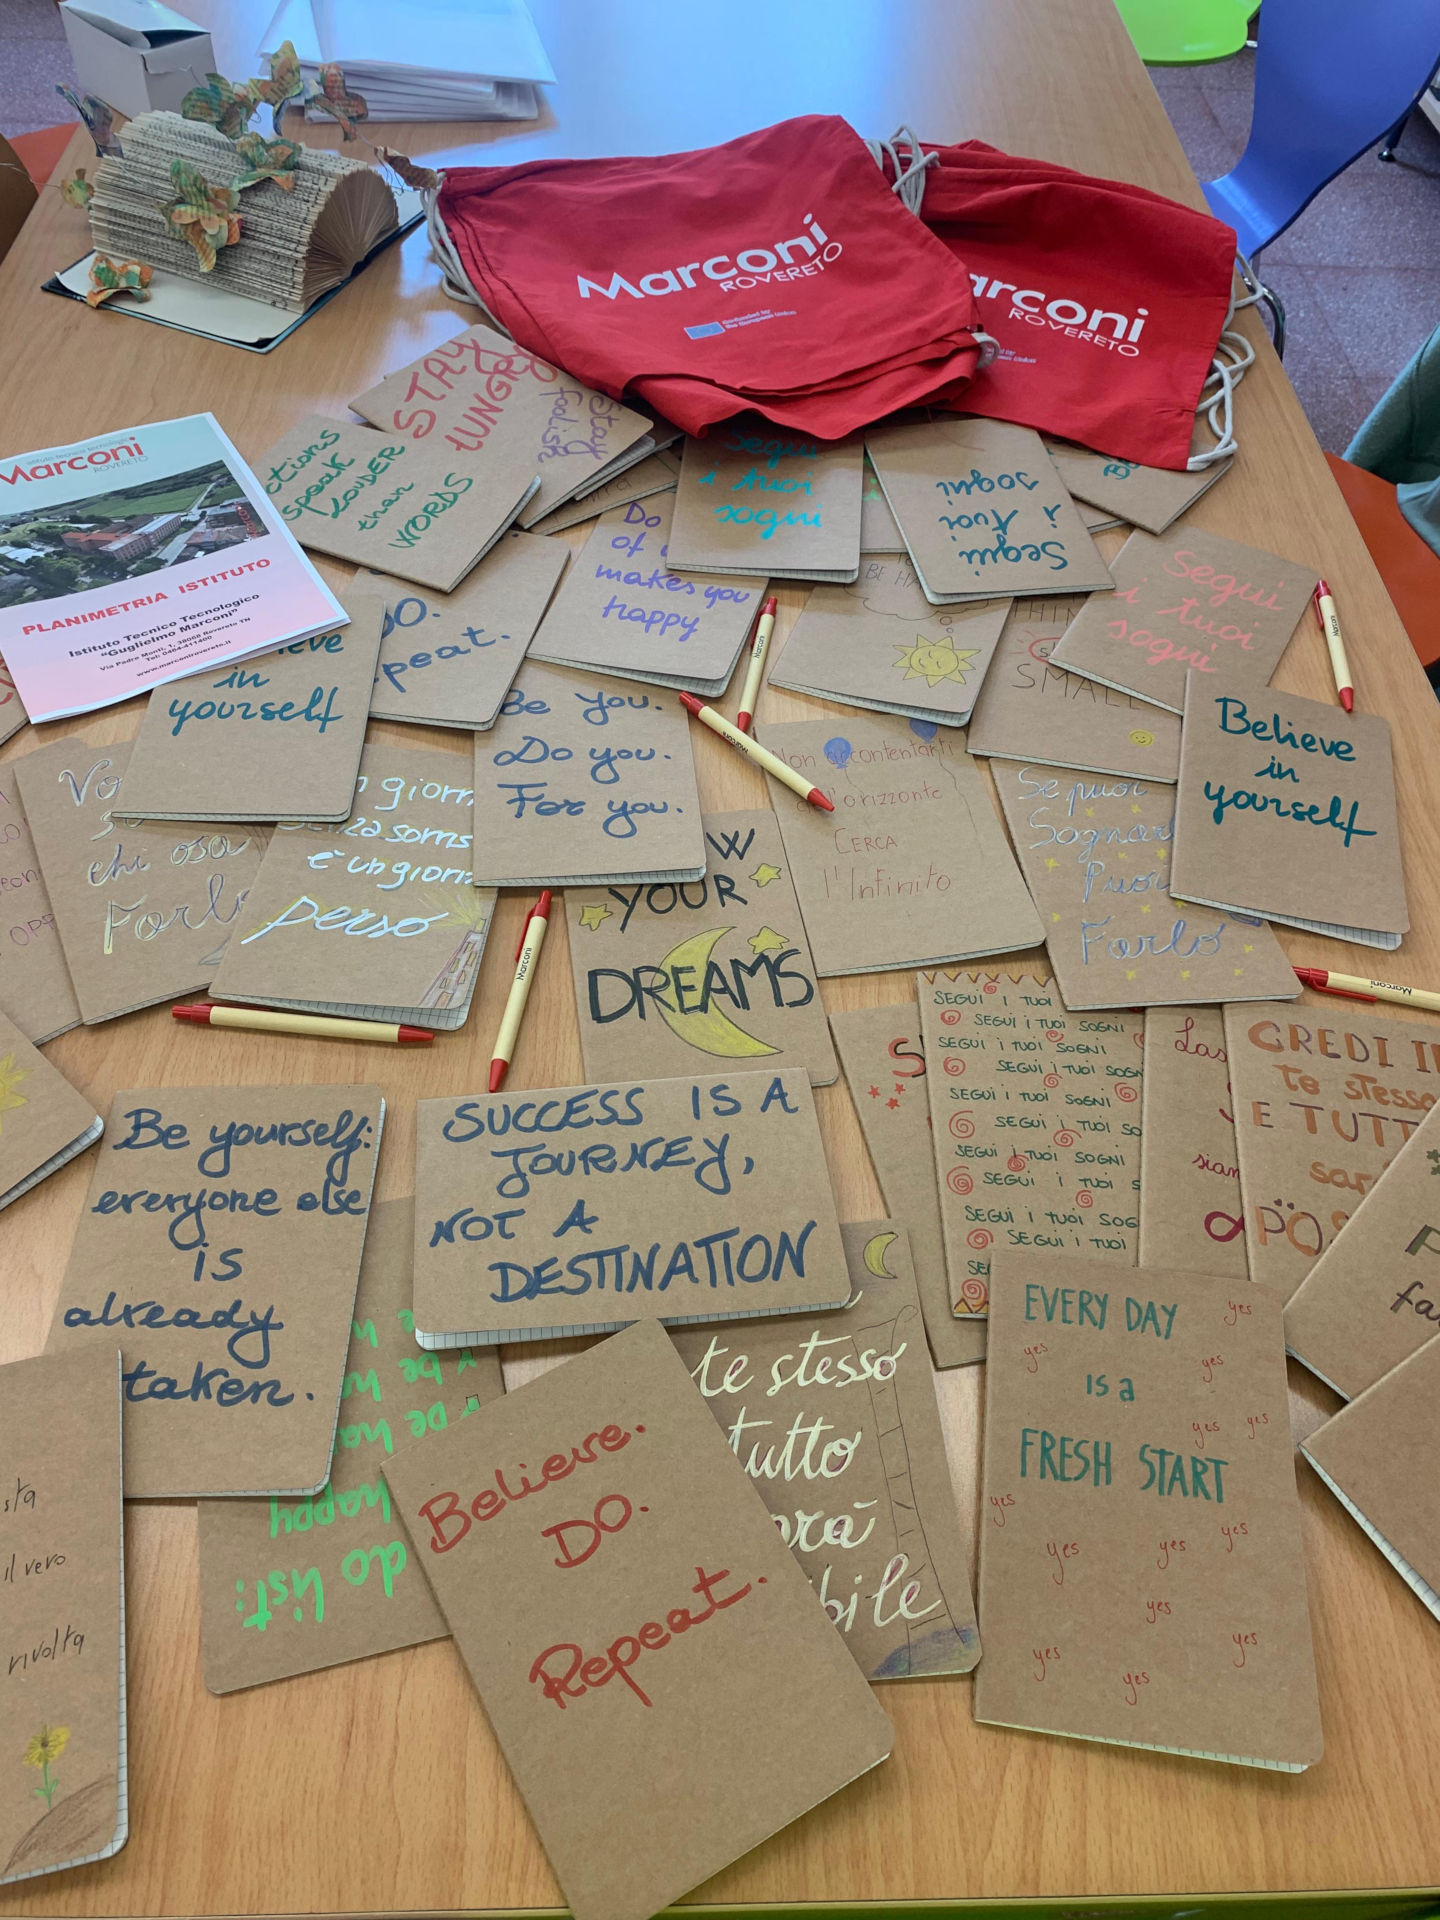 Marconi
ROVERETO
Co-funded by
the European Union
arconi
ROVERETO
STAY
HUNGRY
Stay
foolish
ctions
speak
LOUDER
than
WORDS
istituto tecnico tecnologico
Marconi
ROVERETO
PLANIMETRIA ISTITUTO
Istituto Tecnico Tecnologico
"Guglielmo Marconi"
Via Padre Monti, 1, 38068 Rovereto TN
Tel: 0464-411400
www.marconirovereto.it
Segui
i tuoi
sogni
Segui
i tuoi
sogni
Segui
i tuoi
sogni
Do
of
makes you
happy
DO.
peat.
eve
in
yourself
BE HA
THIN
SMALL
Marconi
Marconi
Marconi
Be you.
Do you.
For you.
Non accontentarti
dell'orizzonte
CERCA
l'Infinito
Believe
in
yourself
Se puoi
Sognar
Puoi
Farlo
Vo
so
chi osa
Farlo
n giorn
senza sorris
è un giorn
perso
OW
YOUR
DREAMS
Marconi
Marconi
SEGUI I TUOI
SEGUI I TUOI SOGNI
SEGUI I TUOI SOGNI
SEGUI I TUOI SOGN
SEGUI I TUOI SOGNI
SEGUI I TUOI SO
SEGUI I TUOI SOGNI
SEGUI I TUOI S
SEGUI I TUOI SOG
SEGUI I TUOI
SE
Las
siam
CREDI I
te stesso
E TUTT
sar
POS
fa
Be yourself:
everyone else
is
already
taken.
SUCCESS IS A
JOURNEY,
NOT A
DESTINATION
do list:
happy
te stesso
tutto
arà
bile
Believe.
DO.
Repeat.
EVERY DAY
is a
FRESH START
yes
yes
yes
yes
yes
yes
yes
yes
yes
yes
yes
yes
yes
sta
il vero
rivolta